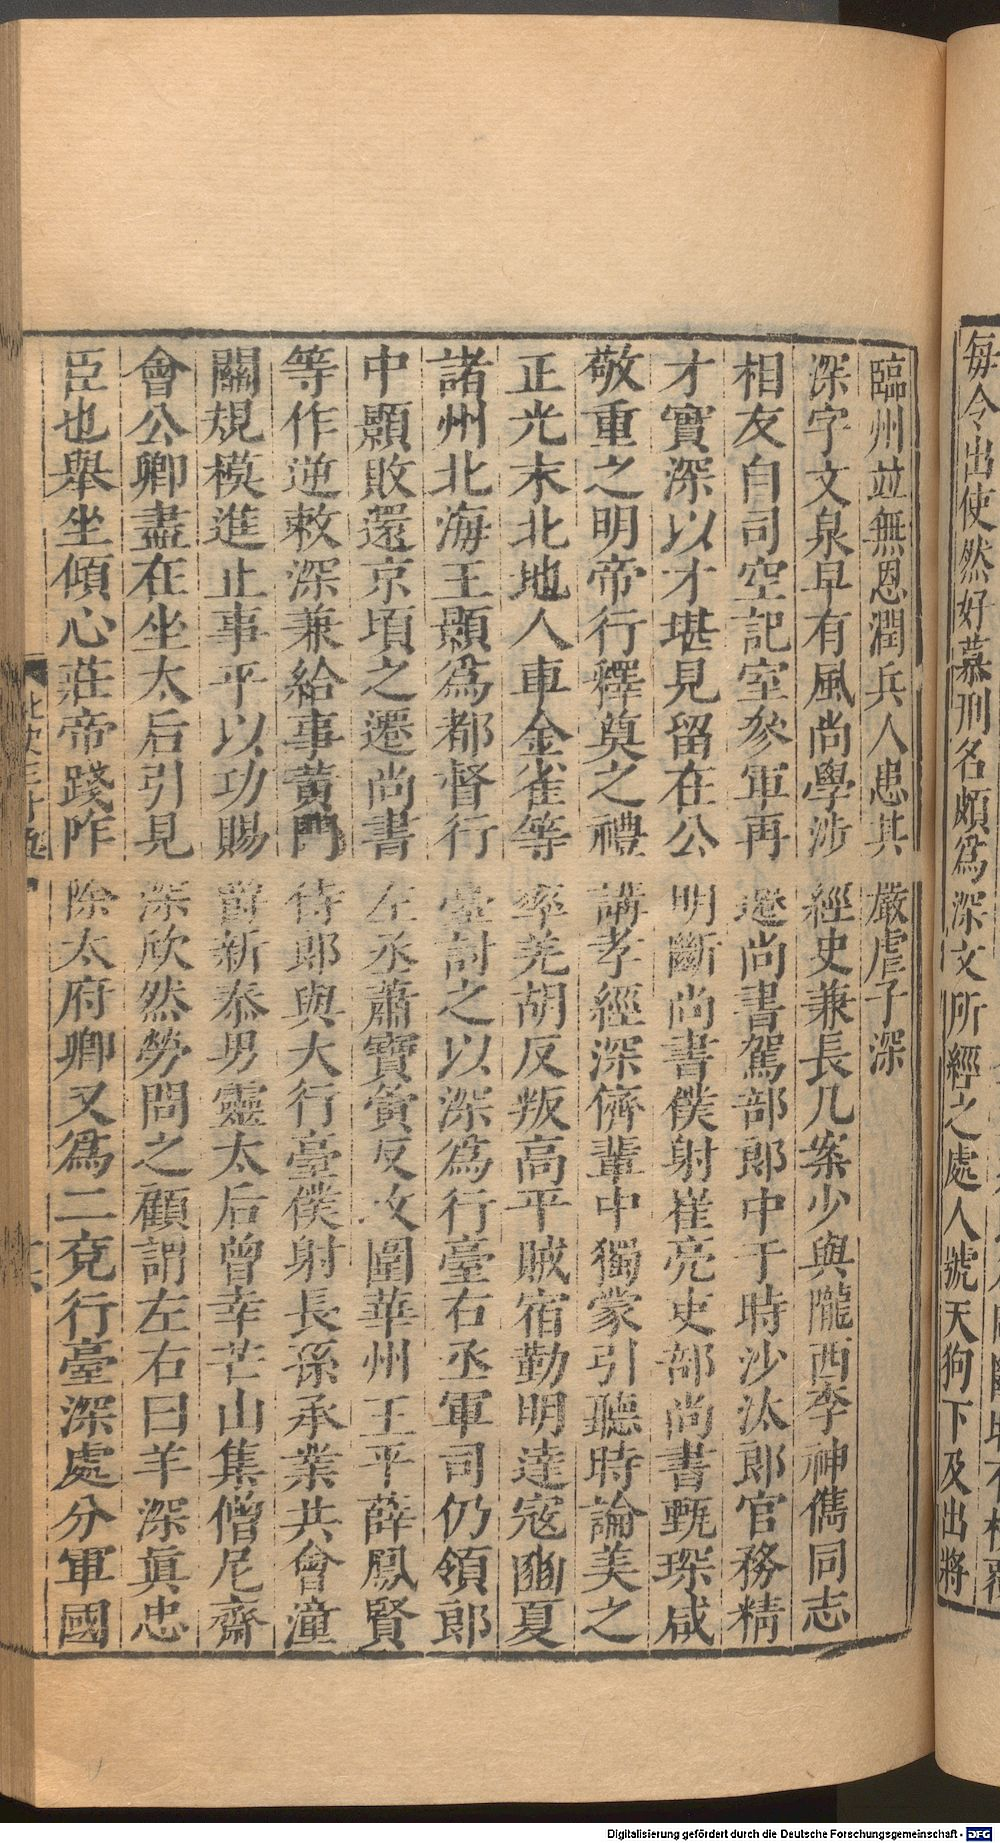 每令出使然好慕刑名頗爲深文所經之處人號天狗下及出將
臨州並無恩潤兵人患其嚴虐子深
深字文泉早有風尚學涉經史兼長几案少與隴西李神儁同志
相友自司空記室參軍再遷尚書駕部郎中于時沙汰郎官務精
才實深以才堪見留在公明斷尚書僕射崔亮吏部尚書甄琛咸
敬重之明帝行釋奠之禮講孝經深儕輩中獨蒙引聽時論美之
正光末北地人車金雀等率羌胡反叛高平賊宿勤明達寇豳夏
諸州北海王顥爲都督行臺討之以深爲行臺右丞軍司仍領郎
中顥敗還京頃之遷尚書左丞蕭寶夤反攻圍華州王平薛鳳賢
等作逆敕深兼給事黃門侍郎與大行臺僕射長孫承業共會潼
關規模進止事平以功賜爵新泰男靈太后曾幸芒山集僧尼齋
會公卿盡在坐太后引見深欣然勞問之顧謂左右曰羊深眞忠
臣也舉坐傾心莊帝踐阼除太府卿又爲二兗行臺深處分軍國